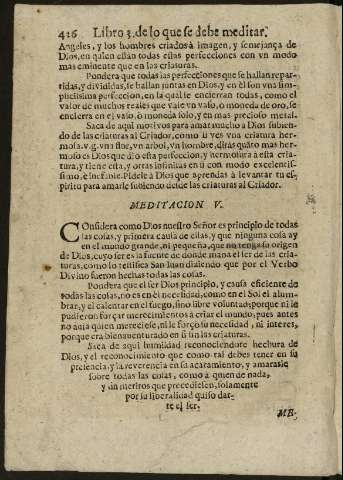 426 Libro 3. de lo que se debe meditar.
Angeles, y los hombres criados à imagen, y semejança de
Dios, en quien estàn estas perfecciones con vn modo
mas eminente que en las criaturas.
Pondera que todas las perfecciones que se hallan repar-
tidas, y divididas, se hallan juntas en Dios, y en èl son vna sim-
plicissima perfeccion, en la qual se encierran todas, como el
valor de muchos reales que vale vn vaso, ò moneda de oro, se
encierra en el vaso, ò moneda solo, y en mas precioso metal.
Saca de aqui motivos para amar mucho à Dios subien-
do de las criaturas al Criador, como si ves vna criatura her-
mosa. v. g. vna flor, vn arbol, vn hombre, diràs quàto mas her-
moso es Dios que diò esta perfeccion, y hermosura à esta cria-
tura, y tiene esta, y otras infinitas en sì con modo excelentis-
simo, è infinite. Pidele à Dios que aprendas à levantar tu es-
piritu para amarle subiendo desde las criaturas al Criador.
MEDITACION V.
Considera como Dios nuestro Señor es principio de todas
las cosas, y primera causa de ellas, y que ninguna cosa ay
en el mundo grande, ni pequeña, que no tenga su origen
de Dios, cuyo ser es la fuente de donde mana el ser de las cria-
turas, como lo testifica San Iuan diziendo que por el Verbo
Divino fueron hechas todas las cosas.
Pondera que el ser Dios principio, y causa eficiente de
todas las cosas, no es en èl necesidad, como en el Sol el alum-
brar, y el calentar en el fuego, sino libre voluntad; porque ni le
pudieron forçar merecimientos à criar el mundo; pues antes
no avia quien mereciese, ni le forçò su necesidad, ni interes,
porque era bienaventurado en sì sin las criaturas.
Saca de aqui humildad reconociendote hechura de
Dios, y el reconocimiento que como tal debes tener en su
presencia, y la reverencia en su acatamiento, y amarasle
sobre todas las cosas, como à quien de nada,
y sin meritos que precediesen, solamente
por su liberalidad quiso dar-
te el ser.
ME-